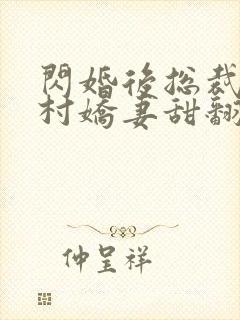 閃婚後总裁
村嬌妻甜翻
仲呈祥